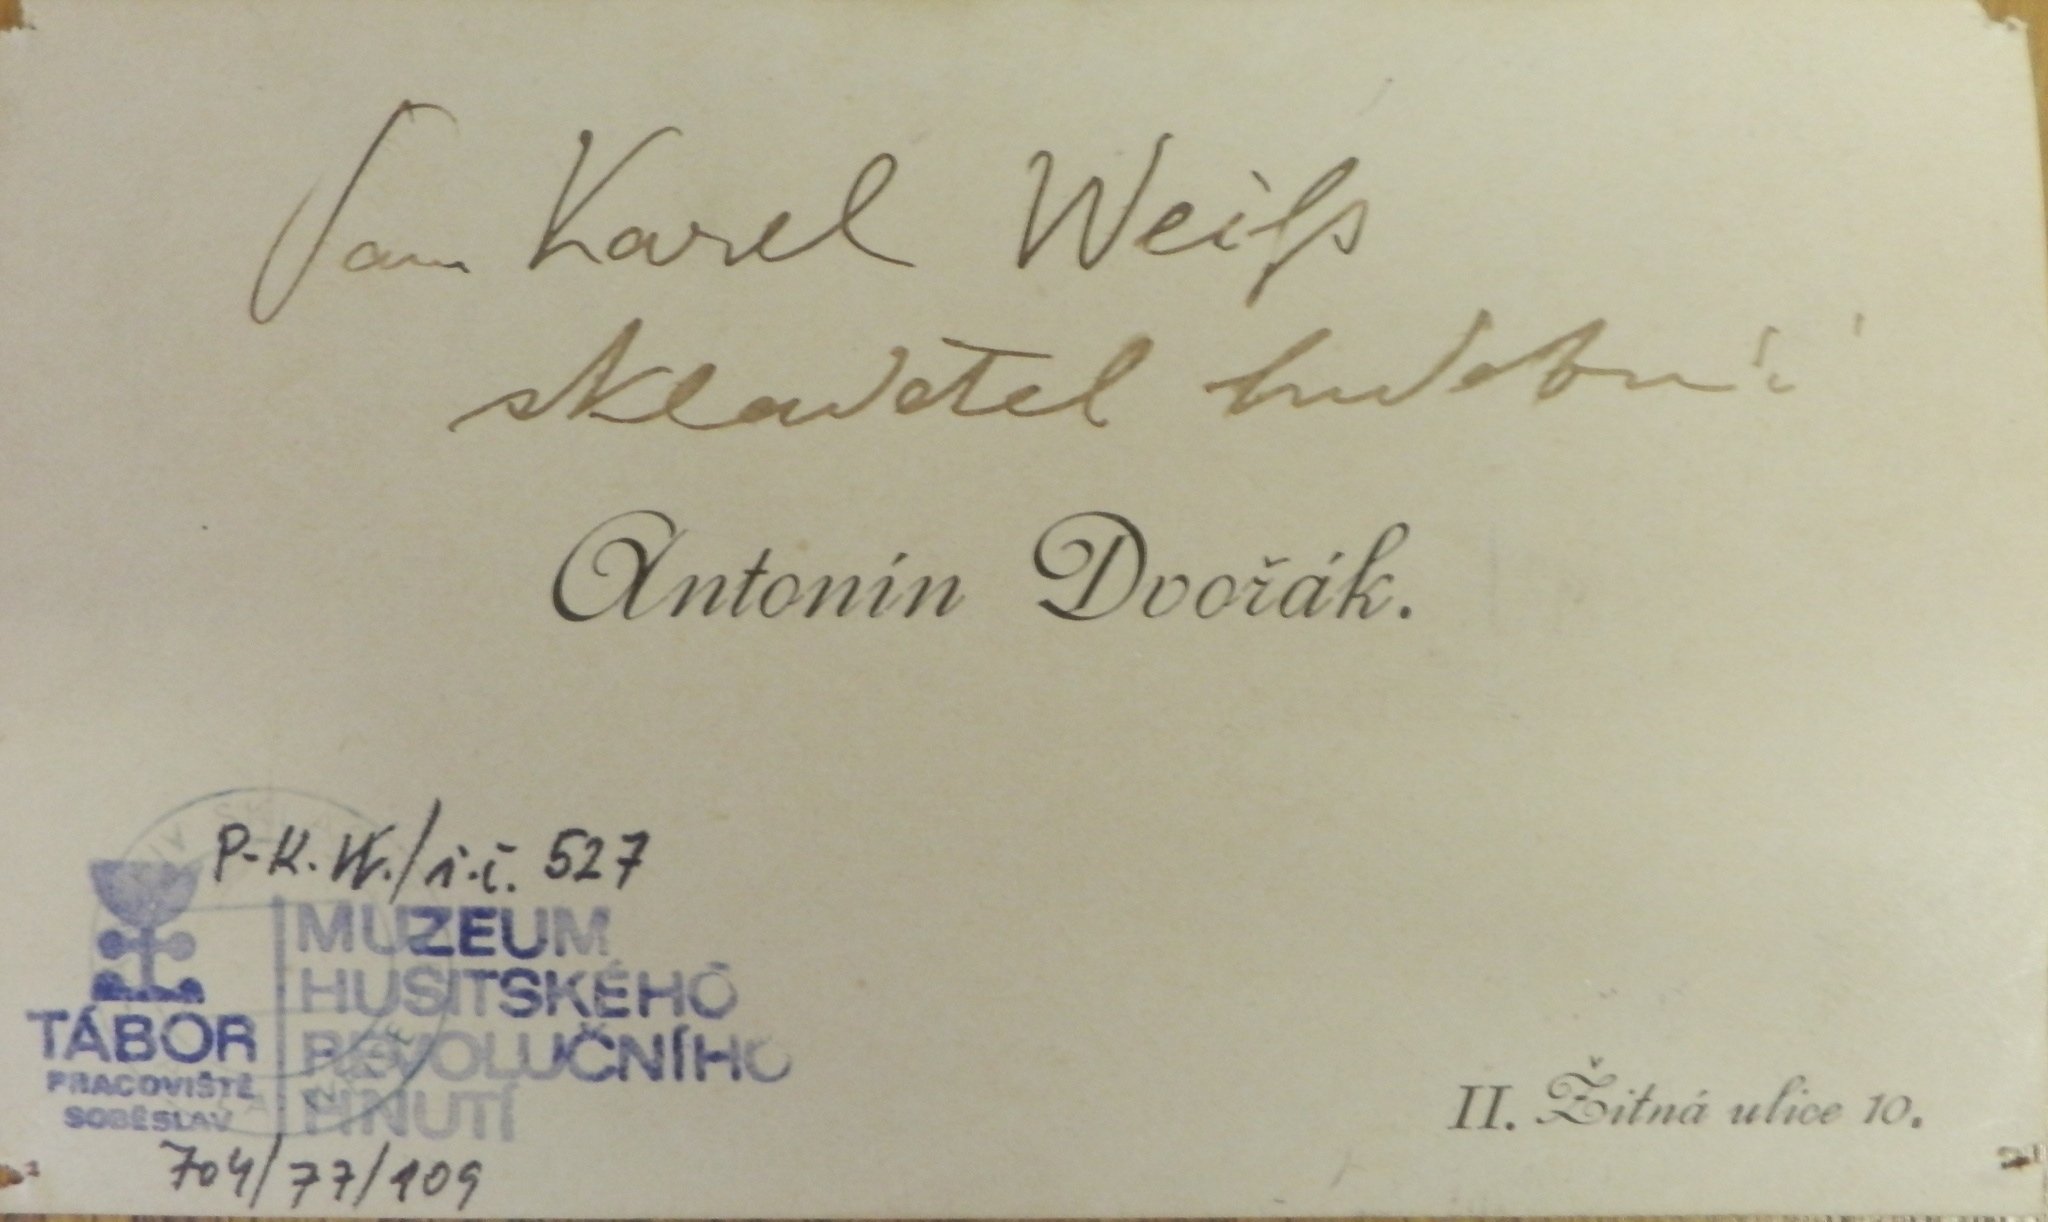 Pan Karel Weiſs
skladatel hudební
Antonín Dvořák.
P-K.W./i.č. 527
MUZEUM
HUSITSKÉHO
REVOLUČNÍHO
HNUTÍ
TÁBOR
PRACOVIŠTĚ
SOBĚSLAV
704/77/109
II. Žitná ulice 10.